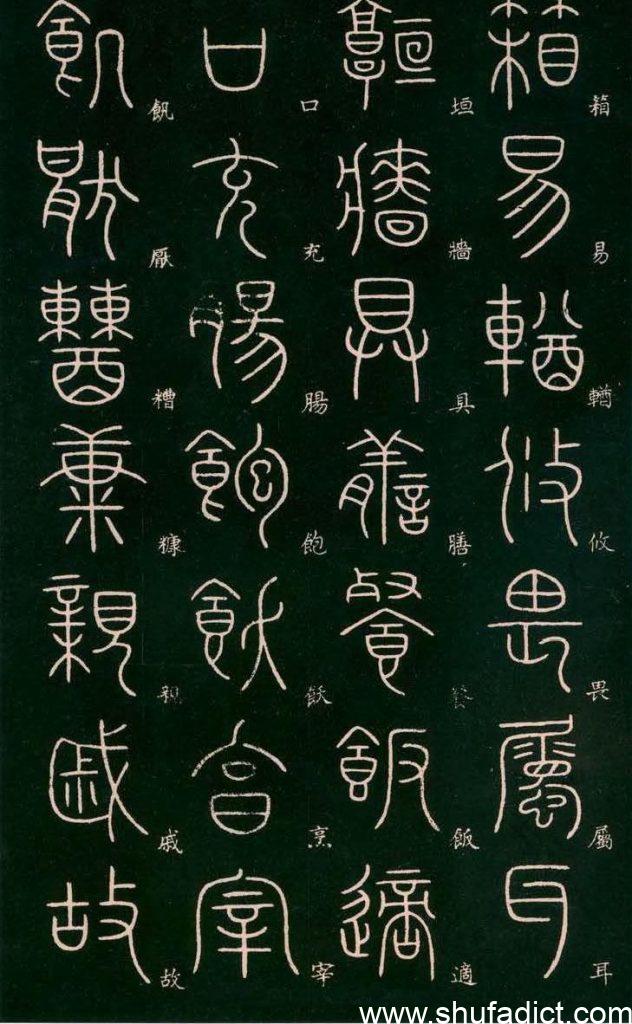 箱易輶攸畏屬耳
垣牆具膳餐飯適
口充腸飽飫烹宰
飢厭糟糠親戚故
www.shufadict.com